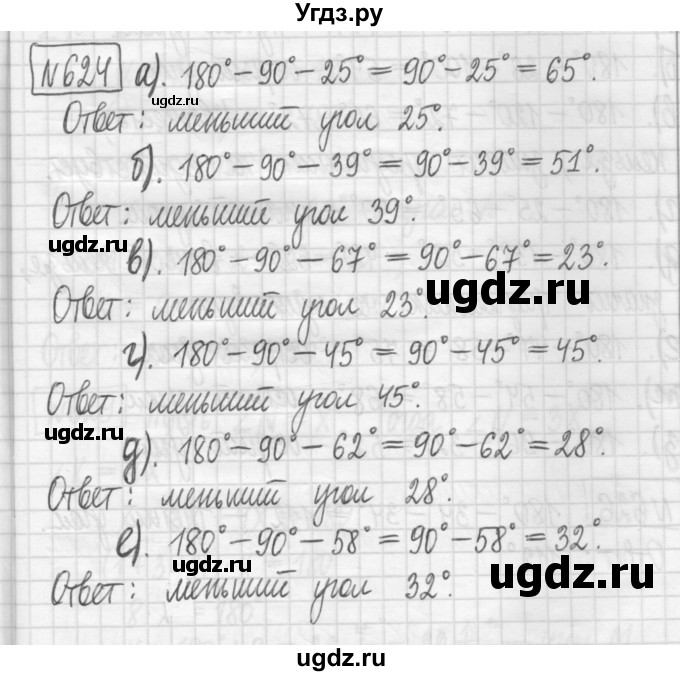 Угдз.ру
№624 а). 180° − 90° − 25° = 90° − 25° = 65°.
Ответ: меньший угол 25°.
б). 180° − 90° − 39° = 90° − 39° = 51°.
Ответ: меньший угол 39°.
ugdz.ru
в). 180° − 90° − 67° = 90° − 67° = 23°.
ugdz.ru
Ответ: меньший угол 23°.
г). 180° − 90° − 45° = 90° − 45° = 45°.
Ответ: меньший угол 45°.
ugdz.ru
д). 180° − 90° − 62° = 90° − 62° = 28°.
Ответ: меньший угол 28°.
е). 180° − 90° − 58° = 90° − 58° = 32°.
ugdz.ru
Ответ: меньший угол 32°.
ugdz.ru